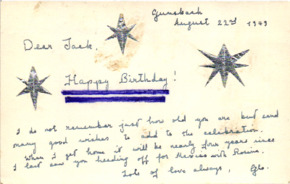 Gunsbach
August 22nd 1949
Dear Jack,
Happy Birthday!
I do not remember just how old you are but send
many good wishes to add to the celebration.
When I get home it will be nearly four years since
I last saw you heading off for Mexico with
Lots of love always,